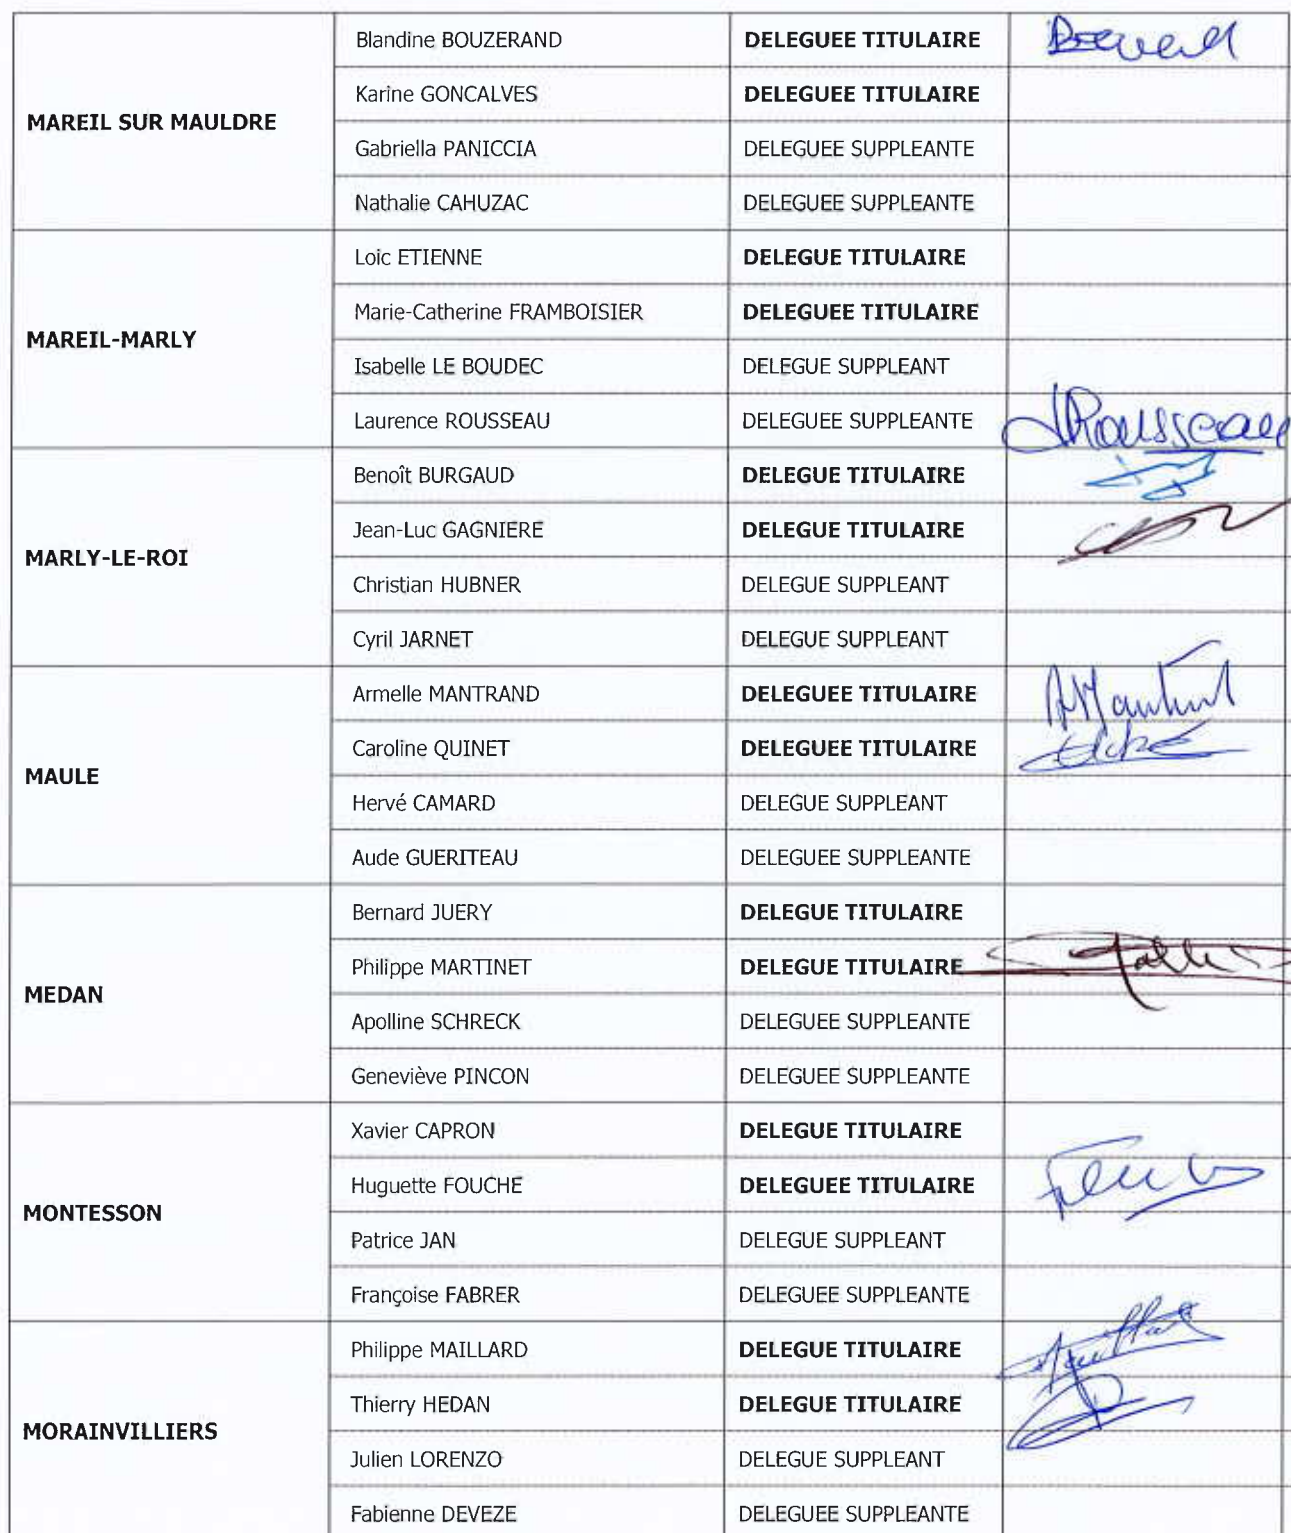 Blandine BOUZERAND DELEGUEE TITULAIRE
Karine GONCALVES DELEGUEE TITULAIRE
MAREIL SUR MAULDRE
Gabriella PANICCIA DELEGUEE SUPPLEANTE
Nathalie CAHUZAC DELEGUEE SUPPLEANTE
Loic ETIENNE DELEGUE TITULAIRE
Marie-Catherine FRAMBOISIER DELEGUEE TITULAIRE
MAREIL-MARLY
Isabelle LE BOUDEC DELEGUE SUPPLEANT
Laurence ROUSSEAU DELEGUEE SUPPLEANTE LRousseau
Benoît BURGAUD DELEGUE TITULAIRE
Jean-Luc GAGNIERE DELEGUE TITULAIRE
MARLY-LE-ROI
Christian HUBNER DELEGUE SUPPLEANT
Cyril JARNET DELEGUE SUPPLEANT
Armelle MANTRAND DELEGUEE TITULAIRE
Caroline QUINET DELEGUEE TITULAIRE
MAULE
Hervé CAMARD DELEGUE SUPPLEANT
Aude GUERITEAU DELEGUEE SUPPLEANTE
Bernard JUERY DELEGUE TITULAIRE
Philippe MARTINET DELEGUE TITULAIRE
MEDAN
Apolline SCHRECK DELEGUEE SUPPLEANTE
Geneviève PINCON DELEGUEE SUPPLEANTE
Xavier CAPRON DELEGUE TITULAIRE
Huguette FOUCHE DELEGUEE TITULAIRE
MONTESSON
Patrice JAN DELEGUE SUPPLEANT
Françoise FABRER DELEGUEE SUPPLEANTE
Philippe MAILLARD DELEGUE TITULAIRE
Thierry HEDAN DELEGUE TITULAIRE
MORAINVILLIERS
Julien LORENZO DELEGUE SUPPLEANT
Fabienne DEVEZE DELEGUEE SUPPLEANTE